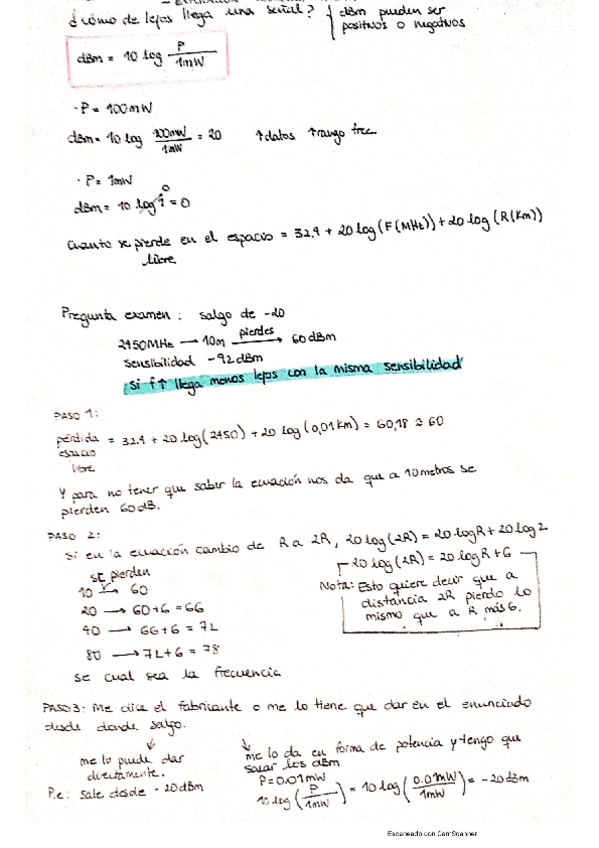 ¿cómo de lejos llega una señal? { dBm pueden ser
positivos o negativos
dBm = 10 log P/1mW
· P = 100mW
dBm = 10 log 100mW/1mW = 20 ↑datos ↑rango frec
· P = 1mW
dBm = 10 log 1 = 0
0
Cuanto se pierde en el espacio = 32.4 + 20 log (F(MHz)) + 20 log (R(Km))
libre
Pregunta examen: salgo de -20
2450MHz → 10m pierdes → 60dBm
Sensibilidad -92dBm
Si f↑ llega menos lejos con la misma sensibilidad
PASO 1:
pérdida espacio libre = 32.4 + 20 log(2450) + 20 log(0,01Km) = 60,18 ≅ 60
Y para no tener que saber la ecuación nos da que a 10 metros se
pierden 60dB.
PASO 2:
Si en la ecuación cambio de R a 2R, 20 log(2R) = 20 log R + 20 log 2
20 log (2R) = 20 log R + 6
se pierden
10 → 60
20 → 60+6 = 66
40 → 66+6 = 72
80 → 72+6 = 78
Nota: Esto quiere decir que a
distancia 2R pierdo lo
mismo que a R más 6.
se cual sea la frecuencia
PASO 3: Me dice el fabricante o me lo tiene que dar en el enunciado
desde donde salgo.
me lo puede dar
directamente.
P.e: Sale desde -20dBm
me lo da en forma de potencia y tengo que
sacar los dBm
P = 0.01mW
10 log (P/1mW) = 10 log (0.01mW/1mW) = -20dBm
Escaneado con CamScanner